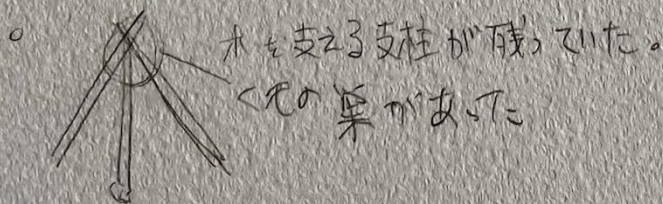 木を支える支柱が残っていた。
くもの巣があった